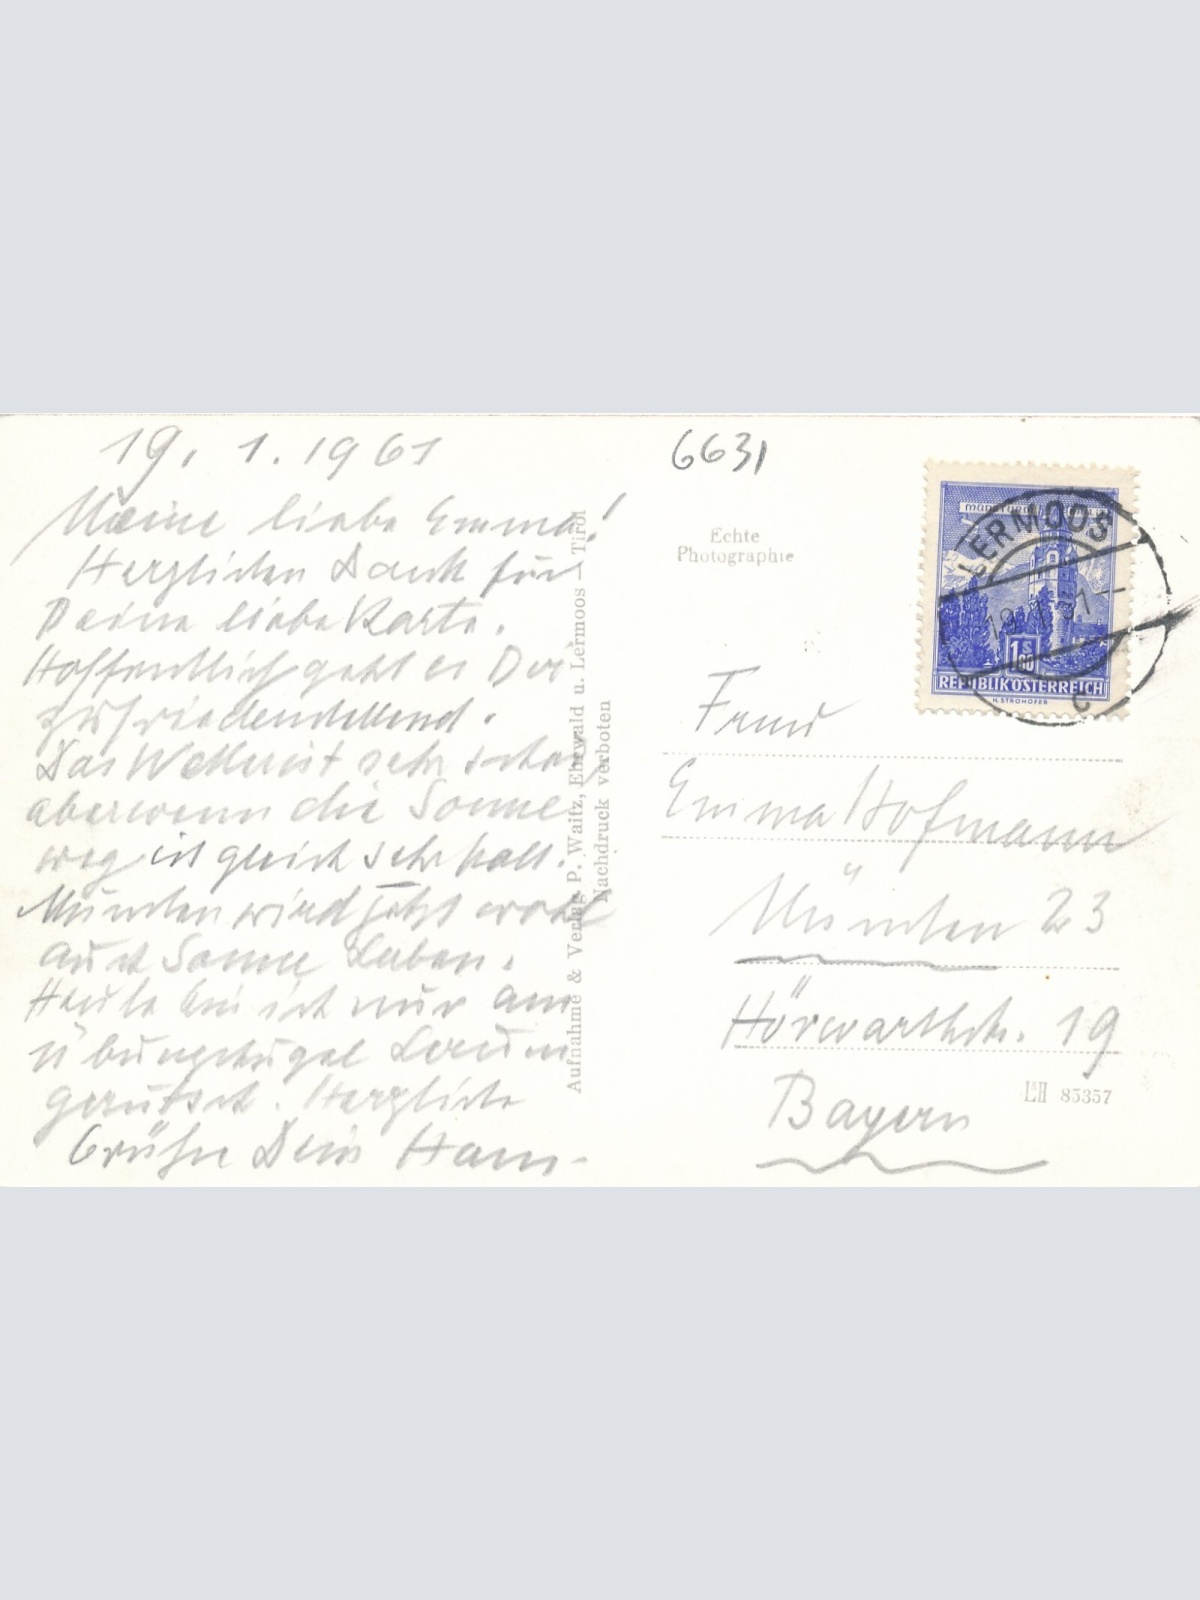 19. 1. 1961
Meine liebe Emma!
Herzlichen Dank für
Deine liebe Karte.
Hoffentlich geht es Dir
zufriedenstellend.
Das Wetter ist sehr schön
aber wenn die Sonne
weg ist gleich sehr kalt.
München wird jetzt wohl
auch Sonne haben.
Heute bin ich nur am
Übungshügel herum
gerutscht. Herzliche
Grüße Dein Hans-
Aufnahme & Verlag P. Waitz, Ehrwald u. Lermoos – Tirol
Nachdruck verboten
6631
Echte
Photographie
LERMOOS
REPUBLIK ÖSTERREICH
H. STROHOFER
Frau
Emma Hofmann
München 23
Hörwarthstr. 19
Bayern
85357